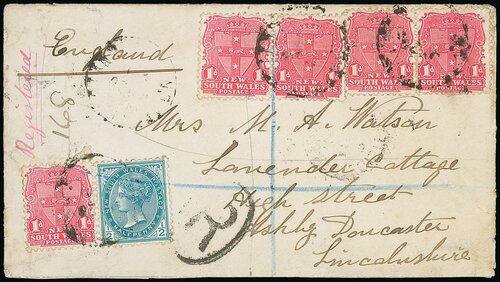 England
Registered
168
1d 1d
NEW
SOUTH WALES
POSTAGE
1d 1d
NEW
SOUTH WALES
POSTAGE
1d 1d
NEW
SOUTH WALES
POSTAGE
1d 1d
NEW
SOUTH WALES
POSTAGE
Mrs M. A. Watson
Lavender Cottage
High Street
Ashby Doncaster
Lincolnshire
1d 1d
NEW
SOUTH WALES
POSTAGE
NEW SOUTH WALES POSTAGE
1/2 HALFPENNY 1/2
R